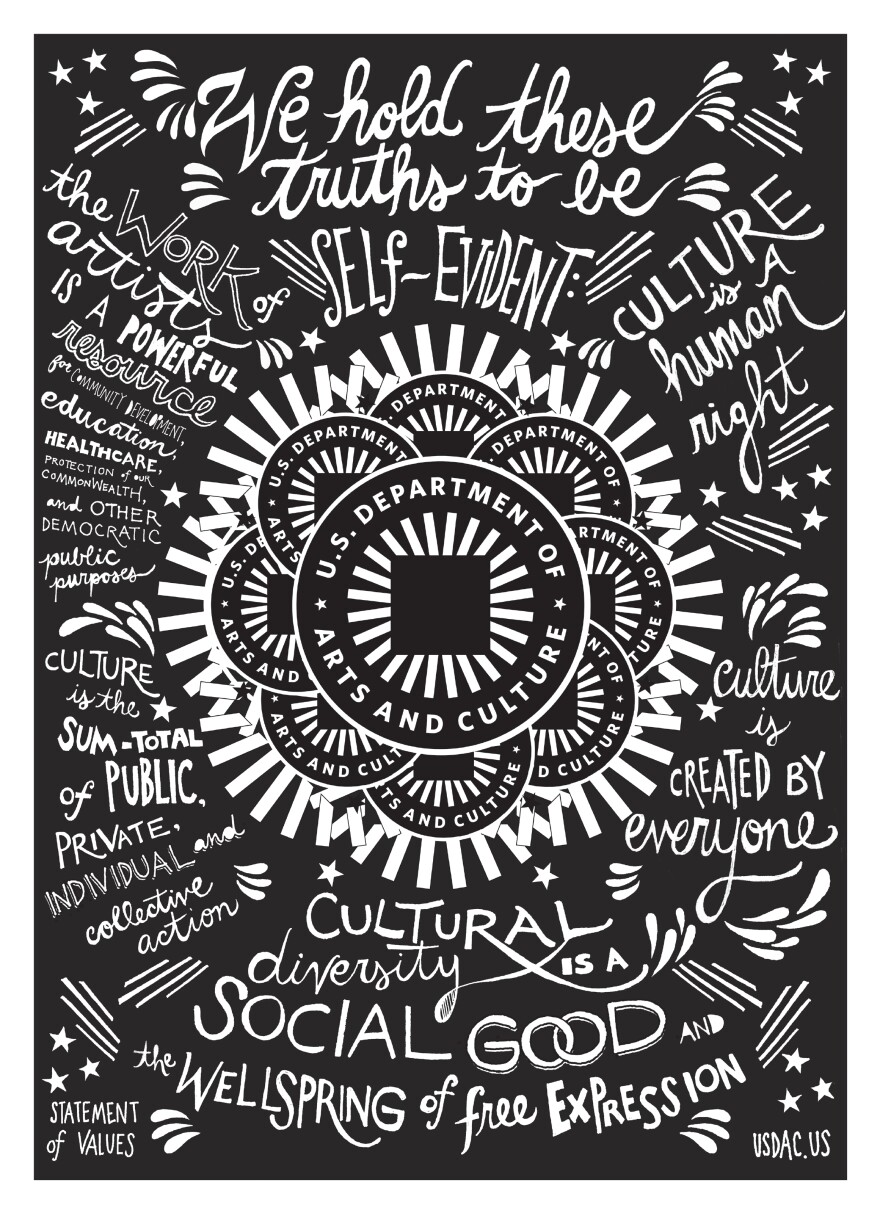 We hold these
truths to be
SELF-EVIDENT:
the WORK of
artists
IS A POWERFUL
resource
for COMMUNITY DEVELOPMENT,
education,
HEALTHCARE,
PROTECTION of OUR
COMMONWEALTH,
and OTHER
DEMOCRATIC
public
purposes
CULTURE
is A
human
right
U.S. DEPARTMENT OF
ARTS AND CULTURE
DEPARTMENT
U.S. DEPARTMENT
ARTS
DEPARTMENT OF
U.S. DE
ARTS AND
RTMENT OF
TURE
ARTS AND CULT
NT OF
D CULTURE
TS AND CULTURE
CULTURE
is the
SUM-TOTAL
of PUBLIC,
PRIVATE,
INDIVIDUAL and
collective
action
culture
is
CREATED BY
everyone
CULTURAL
diversity IS A
SOCIAL GOOD AND
the WELLSPRING of free EXPRESSION
STATEMENT
of VALUES
USDAC.US